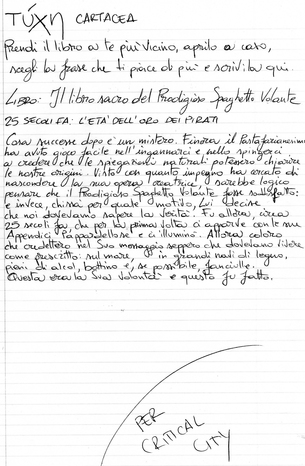 TÚXη CARTACEA
Prendi il libro a te più vicino, aprilo a caso,
scegli la frase che ti piace di più e scrivila qui.
LIBRO: Il libro sacro del Prodigioso Spaghetti Volante
25 SECOLI FA: L'ETÀ DELL'ORO DEI PIRATI
Cosa successe dopo è un mistero. Finora il Pastafarianesimo
ha avuto gioco facile nell'ingannarci e nello spingerci
a credere che le spiegazioni naturali potessero chiarire
le nostre origini. Visto con quanto impegno ha cercato di
nascondere la sua opera creatrice, sarebbe logico
pensare che il Prodigioso Spaghetti Volante fosse soddisfatto:
e invece, chissà per quale motivo, Lui decise
che noi dovevamo sapere la verità. Fu allora, circa
25 secoli fa che per la prima volta ci apparve con le sue
Appendici Pappardellose e ci illuminò. Allora coloro
che credettero nel Suo messaggio seppero che dovevano vivere
come prescritto: sul mare, in grandi navi di legno,
pieni di alcol, bottino e, se possibile, fanciulle.
Questa era la Sua volontà e questo fu fatto.
PER
CRITICAL
CITY